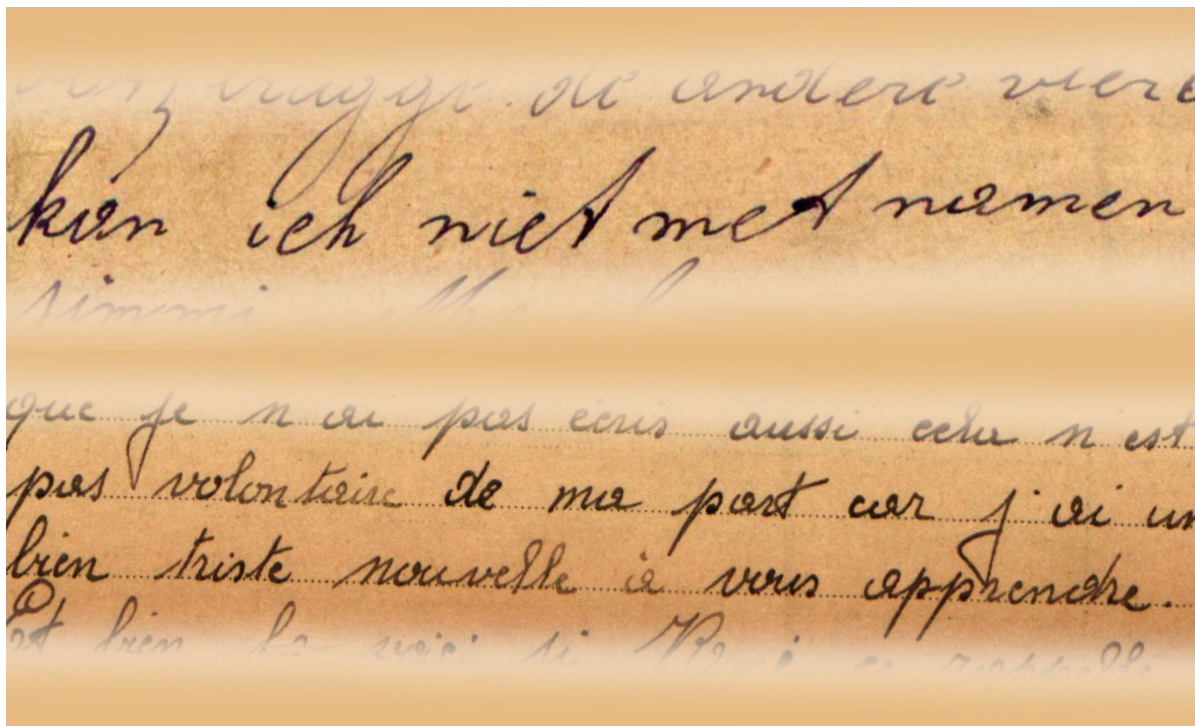 brugge. de andere viere
kan ich niet met namen
que je n ai pas ecris aussi cela n est
pas volontaire de ma part car j'ai un
bien triste nouvelle à vous apprendre.
bien la voici si René se rappelle